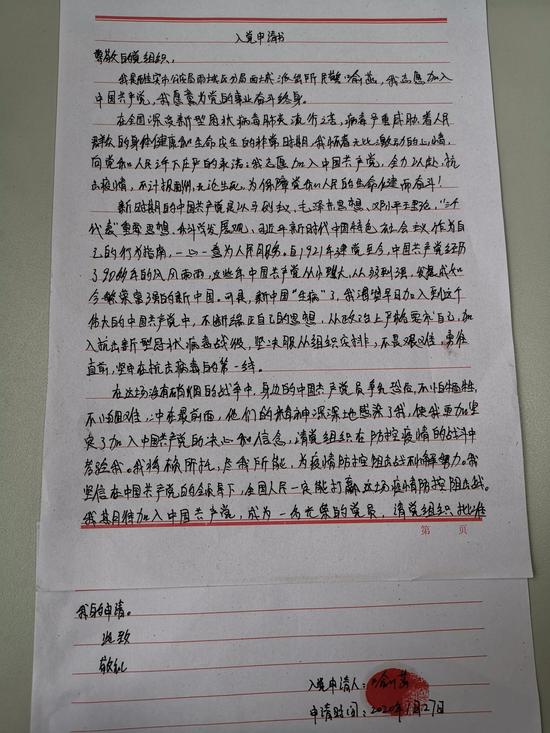 入党申请书
尊敬的党组织:
我是雅安市公安局雨城区分局西城派出所民警喻茜,我志愿加入
中国共产党,我愿意为党的事业奋斗终身。
在全国深受新型冠状病毒肺炎流行之际,病毒严重威胁着人民
群众的身体健康和生命安全的非常时期,我怀着无比激动的心情,
向党和人民许下庄严的承诺:我志愿加入中国共产党,全力以赴,抗
击疫情,不计报酬,无论生死,为保障党和人民的生命健康而奋斗!
新时期的中国共产党是以马列主义、毛泽东思想、邓小平理论、“三个
代表”重要思想、科学发展观、习近平新时代中国特色社会主义作为自
己的行为指南,一心一意为人民服务。自1921年建党至今,中国共产党经历
了90多年的风风雨雨,这些年中国共产党从小壮大,从弱到强,发展成如
今繁荣富强的新中国。可是,新中国“生病”了,我渴望早日加入到这个
伟大的中国共产党中,不断端正自己的思想,从政治上严格要求自己,加
入抗击新型冠状病毒战役,坚决服从组织安排,不畏艰难,勇往
直前,坚守在抗击病毒的第一线。
在这场没有硝烟的战争中,身边的中国共产党员争先恐后,不怕牺牲,
不怕困难,冲在最前面,他们的精神深深地感染了我,使我更加坚
定了加入中国共产党的决心和信念,请党组织在防控疫情的战斗中
考验我。我将倾所托,尽我所能,为疫情防控阻击战不懈努力。我
坚信在中国共产党的领导下,全国人民一定能打赢这场疫情防控阻击战。
我期待加入中国共产党,成为一名光荣的党员,请党组织批准
第 页
我的申请。
此致
敬礼
入党申请人:喻茜
申请时间:2020年1月27日